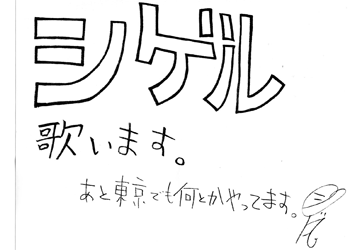 シゲル
歌います。
あと東京でも何とかやってます。